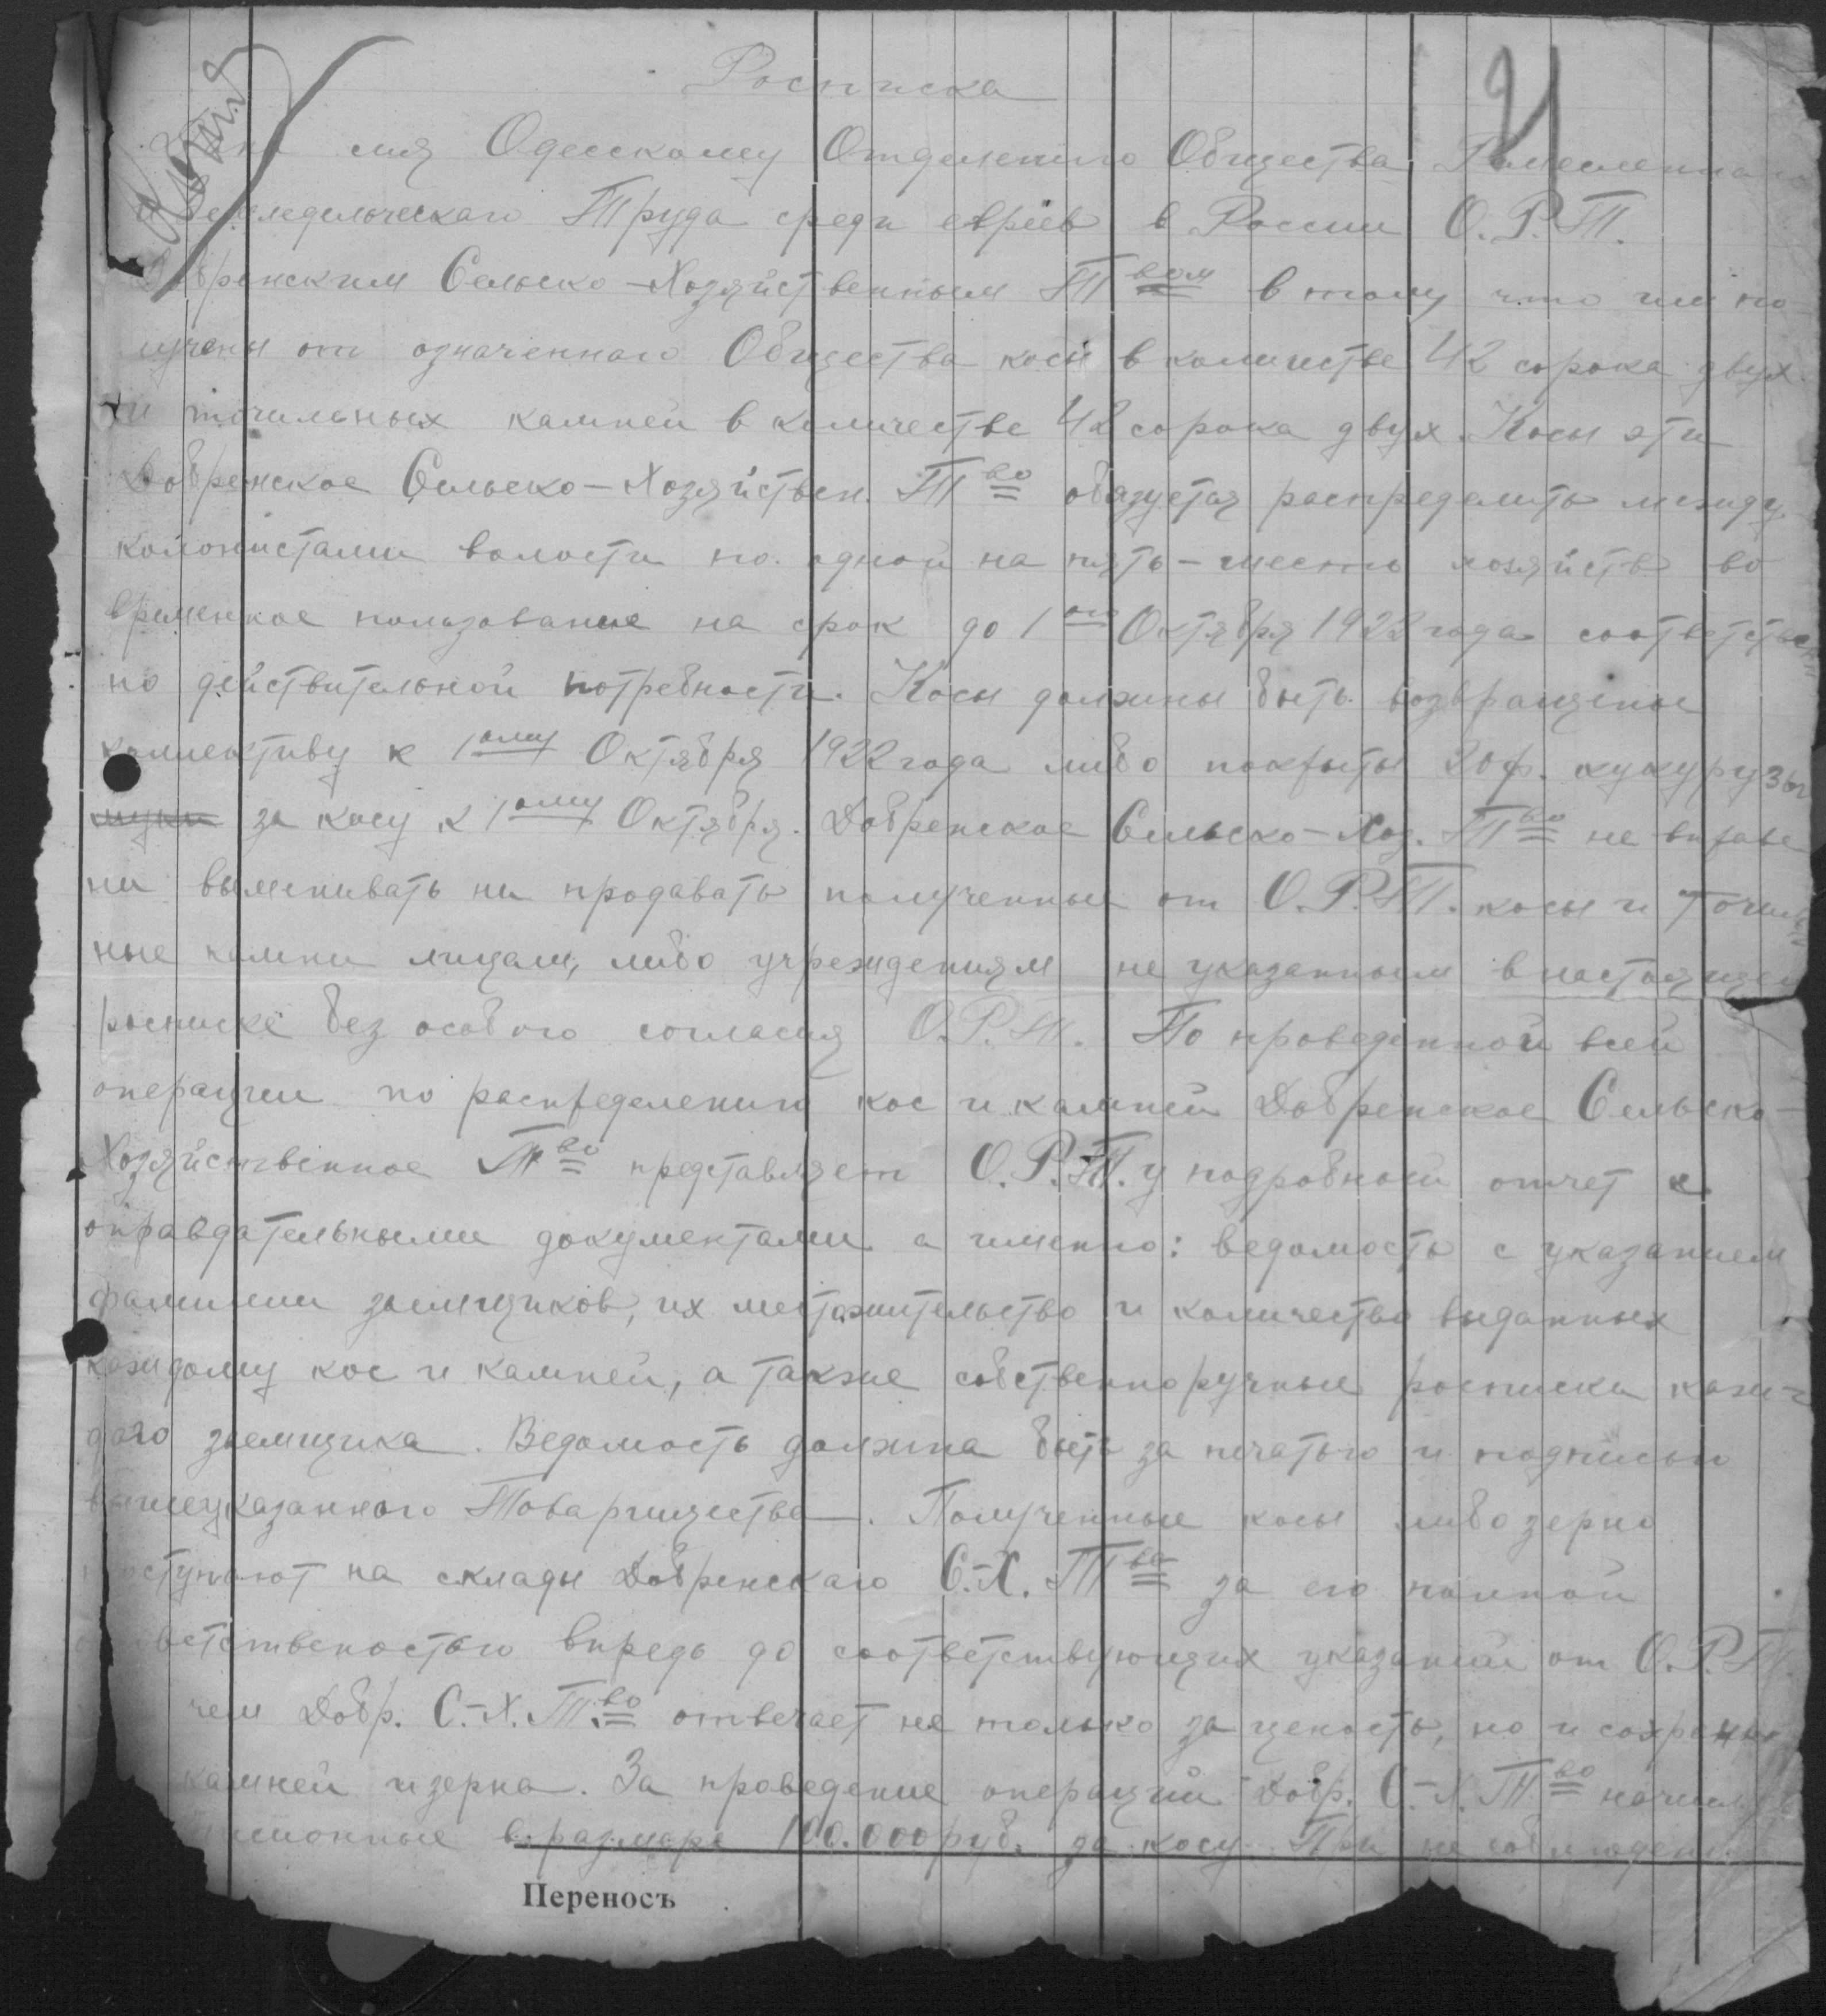 Росписка
21
сия Одесскому Отделению Общества Ремесленнаго
и Земледельческаго Труда среди евреев в России О.Р.Т.
Добренским Сельско-Хозяйственным Т вом в тому что им по-
лучены от означеннаго Общества косы в количестве 42 сорока двух
и точильных камней в количестве 42 сорока двух. Косы эти
Добренское Сельско-Хозяйствен. Т во обязуется распределить между
колонистами волости по одной на пять-шесть хозяйств во
временное пользование на срок до 1 ого Октября 1922 года соответствен
но действительной потребности. Косы должны быть возвращены
коллективу к 1 ому Октября 1922 года либо покрыты 20 ф. кукурузы
за косу к 1 ому Октября. Добренское Сельско-Хоз. Т во не вправе
ни выменивать ни продавать полученные от О.Р.Т. косы и точиль
ные камни лицам, либо учреждениям не указанным в настоящей
росписке без особого согласия О.Р.Т. По проведенной всей
операции по распределению кос и камней Добренское Сельско-
Хозяйственное Т во представляет О.Р.Т.у подробной отчет с
оправдательными документами а именно: ведомость с указанием
фамилии заемщиков, их местожительство и количество выданных
каждому кос и камней, а также собственноручные росписки каж-
даго заемщика. Ведомость должна быть за печатью и подписью
вышеуказанного Товарищества. Полученные косы либо зерно
поступают на склады Добренскаго С.-Х. Т ва за его полной
ответственостью впредь до соответствующих указаний от О.Р.Т.
чем Добр. С.-Х. Т. во отвечает не только за ценость, но и сохранн
камней и зерна. За проведение операций Добр. С.-Х. Т во
в размере 100.000 руб. за косу. При не соблюдени
Переносъ